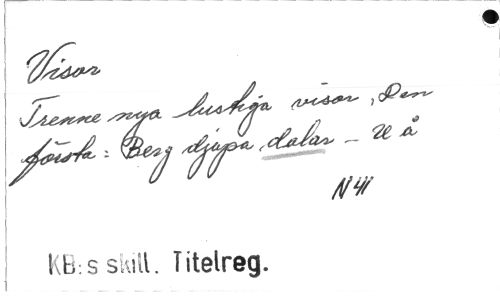 Visor
Trenne nya lustiga visor, Den
första: Berg djupa dalar - U å
N 41
KB:s skill. Titelreg.